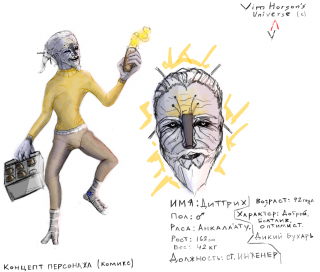 Vim Horgon's
Universe (c)
ИМЯ: Диттрих
Возраст: 92 года
Пол: ♂
Характер: Добрый,
болтлив,
оптимист.
Раса: Анкала'ату.
Дикий бухарь
Рост: 168 см
Вес: 42 кг
Должность: ст. инженер
Концепт персонажа (комикс)